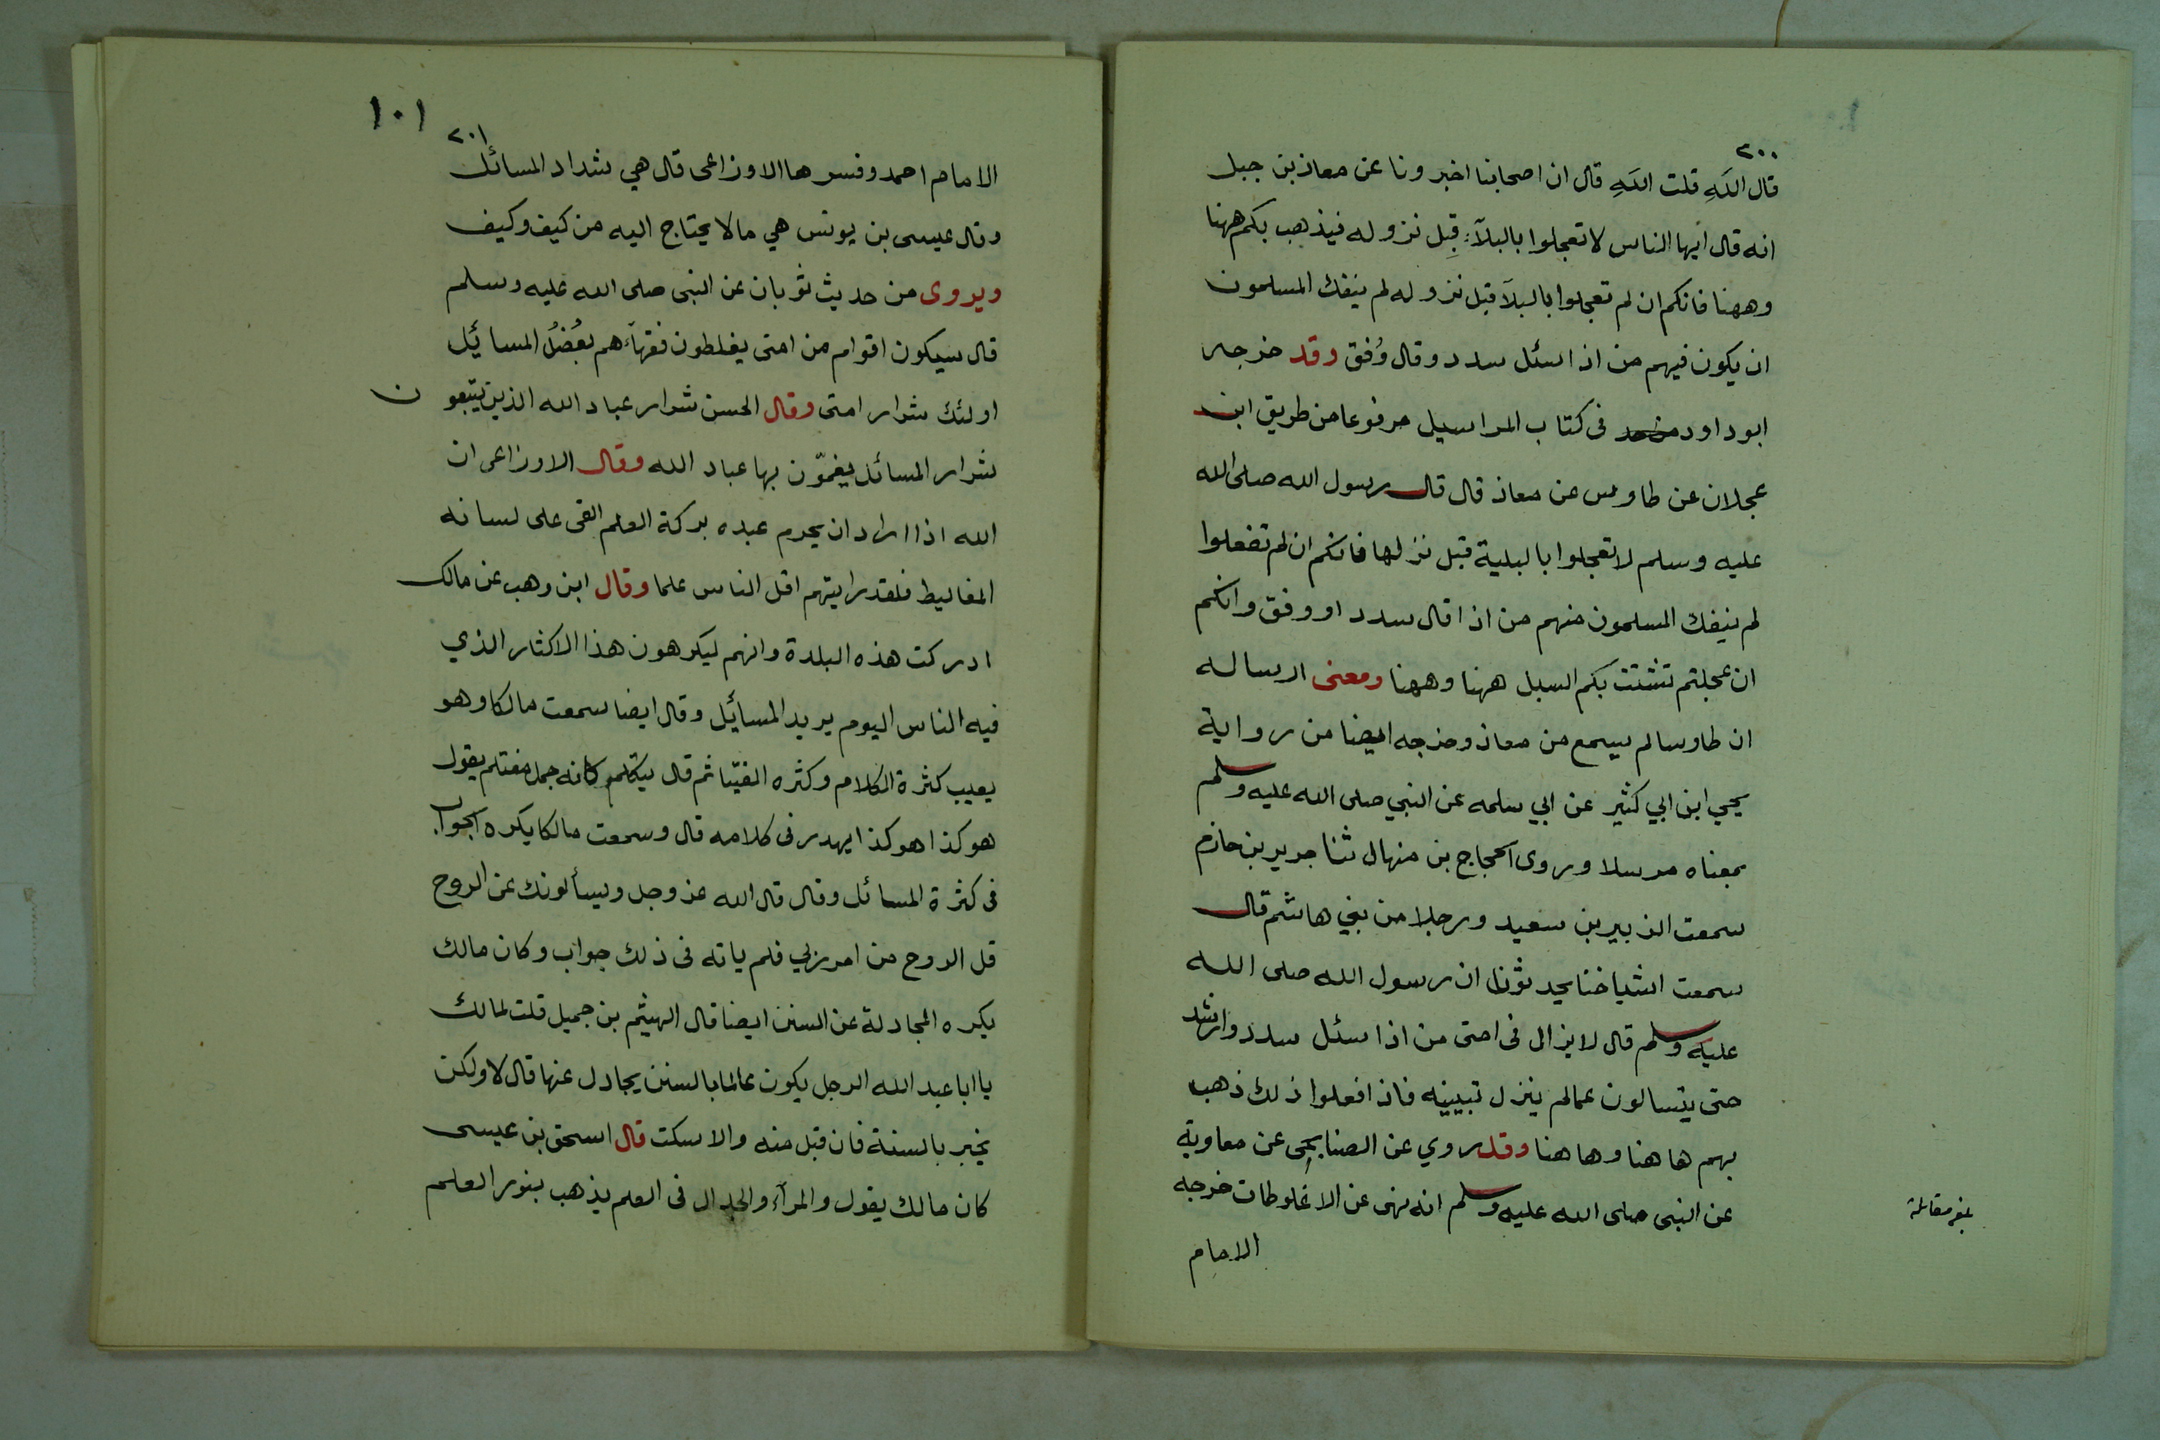 ٢٠٠
قال اللَهِ قلت اللَهِ قال ان اصحابنا اخبرونا عن معاذ بن جبل
انه قال ايها الناس لا تعجلوا بالبلآء قِبل نزوله فيذهب بكم ههنا
وههنا فانكم ان لم تعجلوا بالبلآ قبل نزوله لم ينفك المسلمون
ان يكون فيهم من اذا سئل سدد وقال وُفق وقد خرجه
ابو داود في كتاب المراسيل مرفوعا من طريق ابن
عجلان عن طاوس عن معاذ قال قال رسول الله صلى الله
عليه وسلم لا تعجلوا بالبلية قبل نزلها فانكم ان لم تفعلوا
لم ينفك المسلمون منهم من اذا قال سدد او وفق وانكم
ان عجلتم تشتت بكم السبل ههنا وههنا ومعنى ارساله
ان طاوسا لم يسمع من معاذ وخرجه ايضا من رواية
يحيي ابن ابي كثير عن ابي سلمه عن النبي صلى الله عليه وسلم
بمعناه مرسلا وروى الحجاج بن منهال ثنا جرير بن حازم
سمعت الزبير بن سعيد ورجلا من بني هاشم قال
سمعت اشياخنا يحدثون ان رسول الله صلى الله
عليه وسلم قال لا يزال في امتى من اذا سئل سدد وارشد
حتى يتسالون عمالم ينزل تبيينه فاذا فعلوا ذلك ذهب
بهم هاهنا وهاهنا وقد روي عن الصنابحي عن معاوية
عن النبى صلى الله عليه وسلم انه نهى عن الاغلوطات خرجه
الامام
بلغ مقابلة
١٠١
٢٠١
الامام احمد وفسرها الاوزاعى قال هي شداد المسائل
وقال عيسى بن يونس هي مالا يحتاج اليه من كيف وكيف
ويروى من حديث ثوبان عن النبى صلى الله عليه وسلم
قال سيكون اقوام من امتى يغلطون فقهآءهم بعُضَلُ المسائل
اولئك شرار امتى وقال الحسن شرار عباد الله الذين يتبعون
شرار المسائل يغمّون بها عباد الله وقال الاوزاعى ان
الله اذا اراد ان يحرم عبده بركة العلم القى على لسانه
المغاليط فلقد رايتهم اقل الناس علما وقال ابن وهب عن مالك
ادركت هذه البلدة وانهم ليكرهون هذا الاكثار الذي
فيه الناس اليوم يريد المسائل وقال ايضا سمعت مالكا وهو
يعيب كثرة الكلام وكثره الفيّتا ثم قال يتكلم كانه جمل مغتلم يقول
هو كذا هو كذا يهدر في كلامه قال وسمعت مالكا يكره الجواب
فى كثرة المسائل وقال قال الله عز وجل ويسألونك عن الروح
قل الروح من امر ربي فلم ياته فى ذلك جواب وكان مالك
يكره المجادلة عن السنن ايضا قال الهيثم بن جميل قلت لمالك
يا ابا عبد الله الرجل يكون عالما بالسنن يجادل عنها قال لا ولكن
يخبر بالسنة فان قبل منه والا سكت قال اسحق بن عيسى
كان مالك يقول والمرآء والجدال فى العلم يذهب بنور العلم